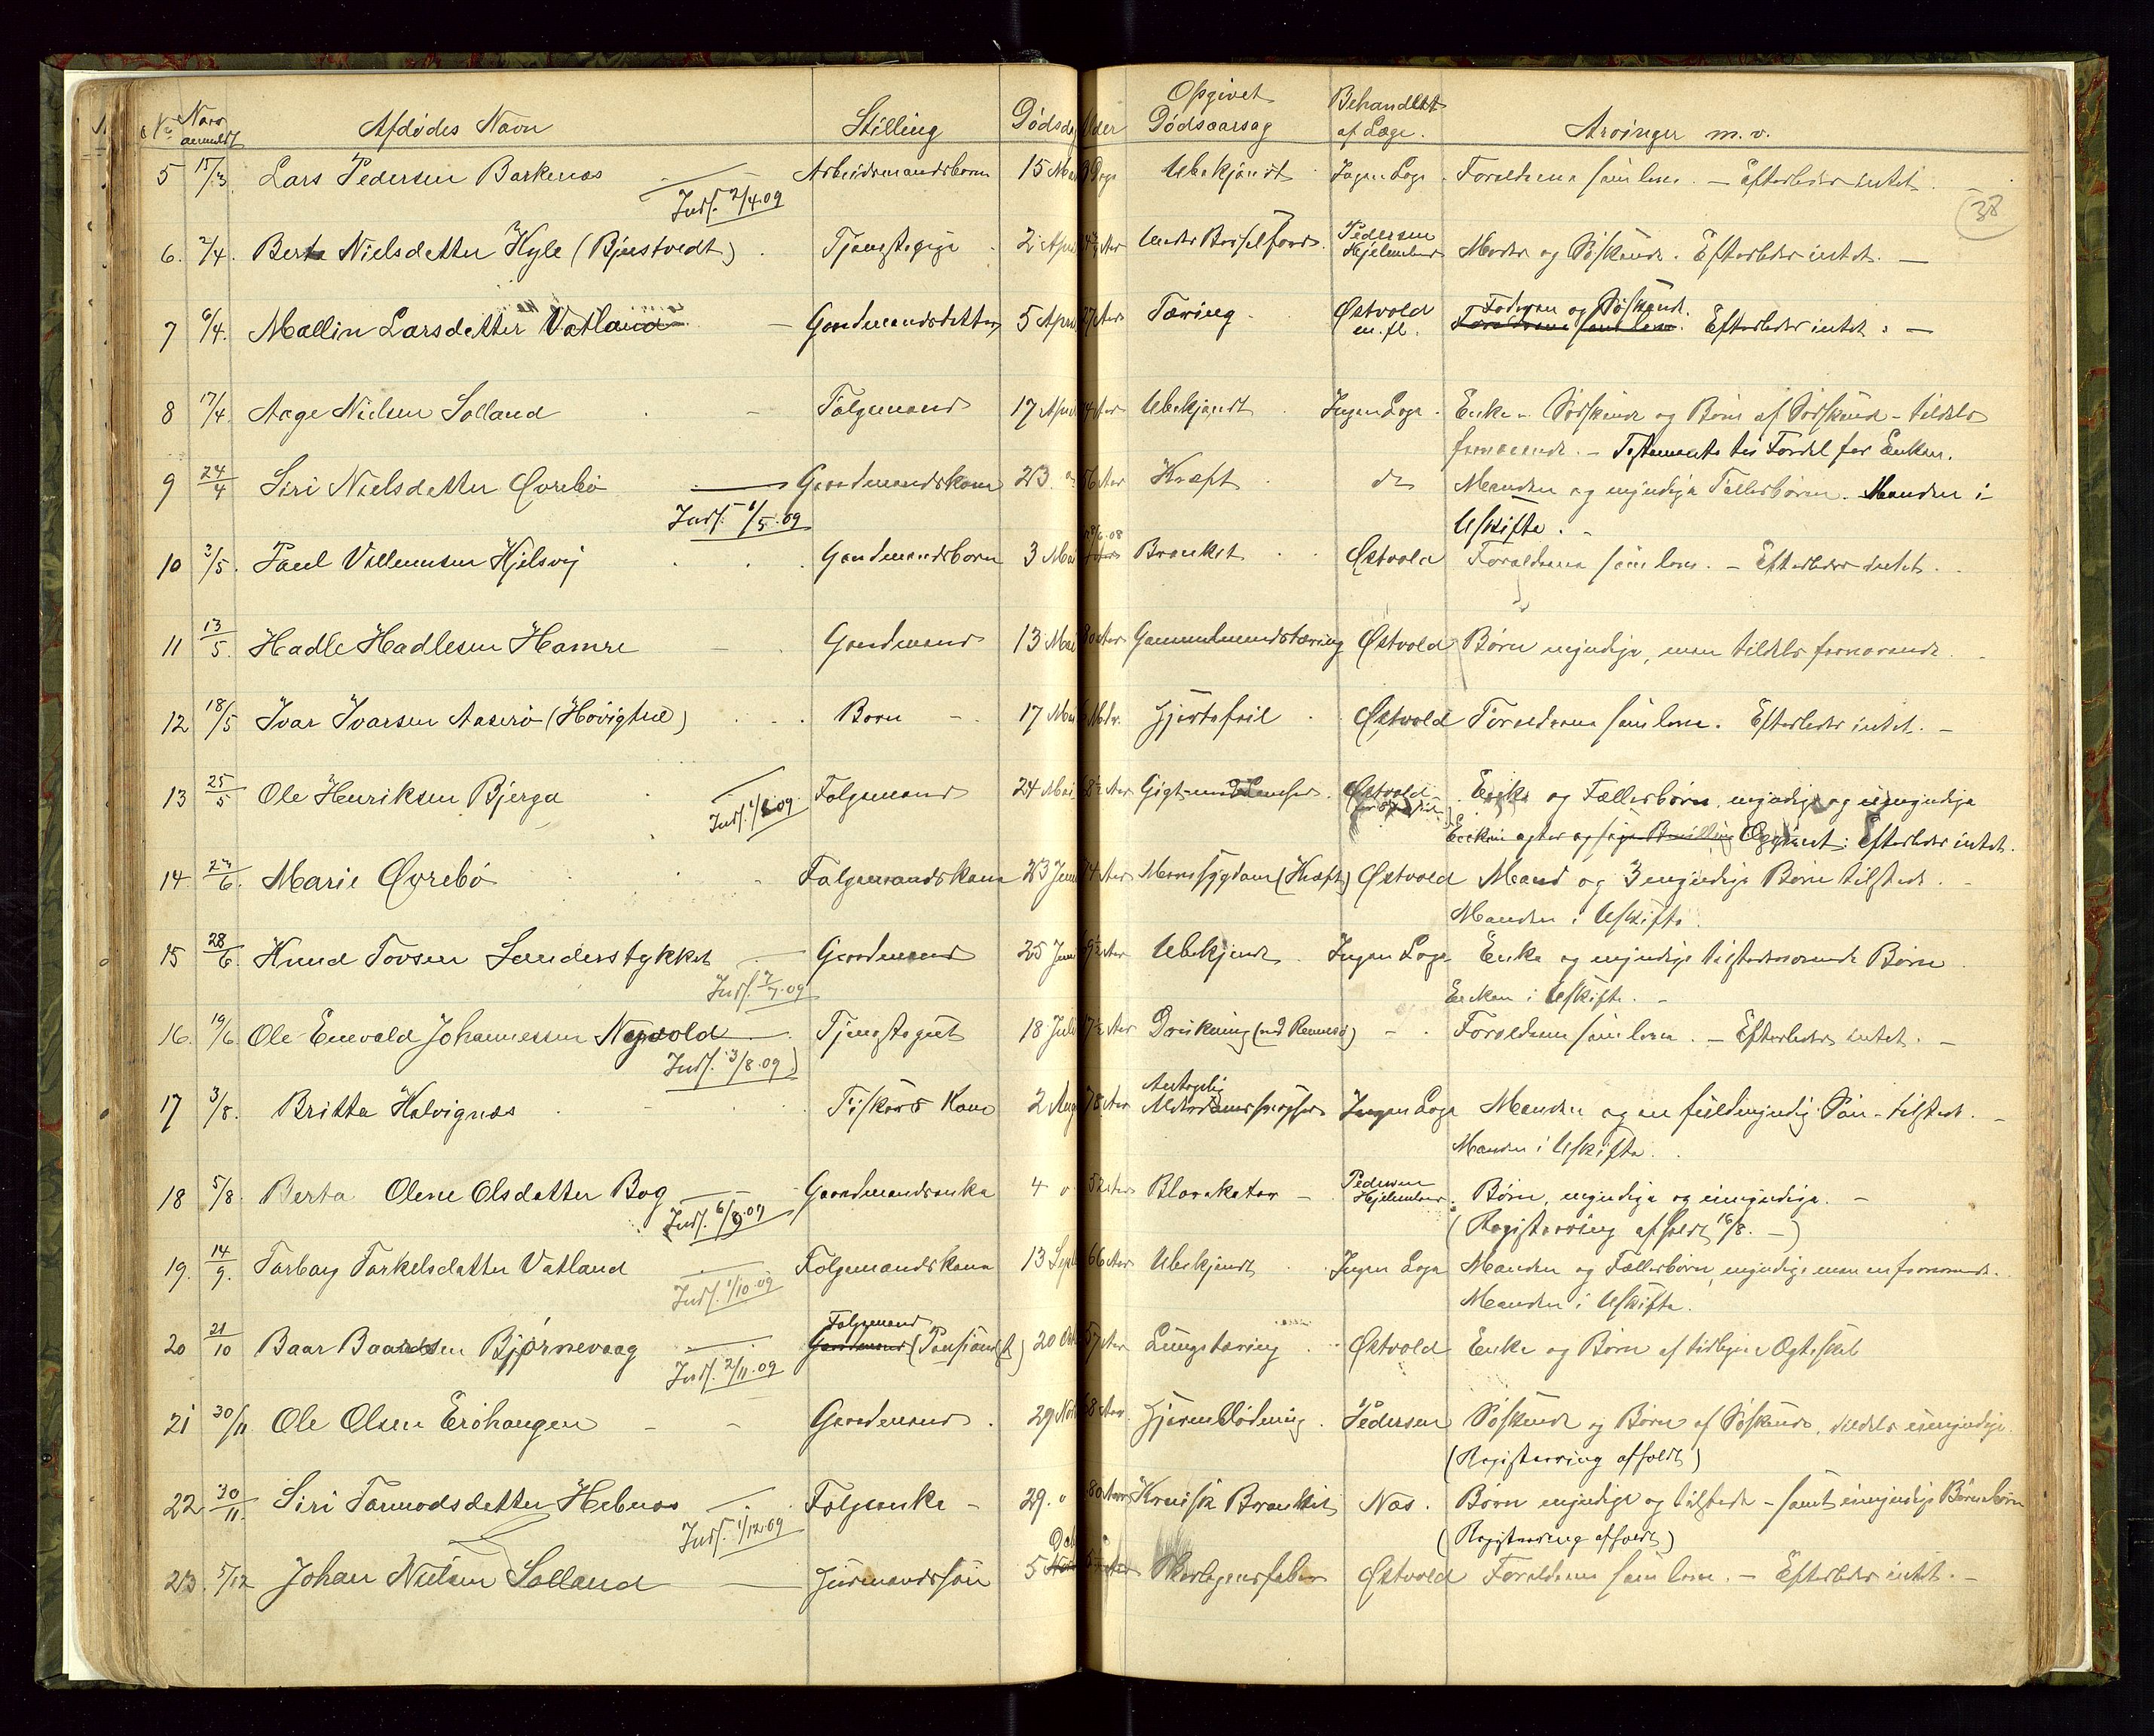 No Naar anmeldt Afdødes Navn Stilling Dødsdag Alder Opgivet Dødsaarsag Behandlet af Læge. Arvinger m.v.
38
5 15/3. Lars Pedersen Barkenæs Arbeidsmandsbarn 15 Mar Dage Ubekjendt Ingen Læge. Forældrene som leve. – Efterleder intet.
Indf. 2/4.09
6. 2/4. Berta Nielsdetter Hyle (Bjustvedt) Tjenestepige 2 April Aar Under Barselfærd. Pedersen Hjelmeland Moder og Søskende. Efterleder intet. –
7 6/4. Mallin Larsdetter Vatland Gaardmandsdatter 5 April 27 Aar Tæring Østvold m.fl. Faderen og Søskende.
Forældrene som leve. Efterleder intet. –
8 17/4. Aage Nielsen Solland Følgemand 17 April Aar Ubekjendt Ingen Læge. Enke – Sødskende og Børn af Sødskende – tildels
fraværende. – Testamente til Fordel for Enken.
9 24/4 Siri Nielsdetter Øvrebø Gaardmandskone 23. " 76 Aar Kræft do Manden og myndige Fællesbørn. Manden i
Indf. 1/5.09 Uskifte. –
10 3/5. Paul Villumsen Hjelsvig Gaardmandsbarn 3 Mai Bronkit Østvold Forældrene som leve. – Efterleder intet.
11 13/5. Hadle Hadlesen Hamre Gaardmand 13 Mai 80 Aar Gammelmandstæring Østvold Børn myndige, men tildels fraværende.
12 18/5 Ivar Ivarsen Aaserø (Høvigtue) Barn 17 Mai Mdr. Hjertefeil Østvold Forældrene som leve. Efterleder intet. –
13 25/5 Ole Henriksen Bjerga Følgemand 24 Mai Aar Gigt Østvold Enke og Fællesbørn, myndige og umyndige
Indf. 1/6 09 Enken agter og Opgivet: Efterleder intet.
14. 23/6. Marie Øvrebø Følgemandskone 23 Juni 74 Aar Mavesygdom (Kræft) Østvold Mand og 3 myndige Børn tilstede. –
Manden i Uskifte.
15 28/6. Knud Tovsen Sanderstykket Gaardmand 25 Juni Aar Ubekjendt Ingen Læge Enke og myndige tilstedeværende Børn
Indf. 2/7.09 Enken i Uskifte. –
16. 19/6 Ole Enevald Johannessen Nyvold Tjenestegut 18 Juli 17½ Aar Drukning (ved Rennesø) Forældrene som leve. – Efterleder intet. –
Indf. 3/8.09
17 3/8. Britta Halvignæs Fiskers Kone 2 Aug 78 Aar Antagelig
Alderdomssvaghed Ingen Læge Manden og en fuldmyndig Søn – tilstede. –
Manden i Uskifte.
18 5/8. Berta Olene Olsdatter Bog Gaardmandsenke 4 " 52 Aar Blærekatar – Pedersen Hjelmeland. Børn, myndige og umyndige. –
Indf. 6/9.09 (Registrering afholdt 16/8. –)
19. 14/9. Torborg Torkelsdatter Vatland Følgemandskone 13 Sept 66 Aar Ubekjendt Ingen Læge Manden og Fællesbørn, myndige men en fraværende.
Indf. 1/10.09 Manden i Uskifte.
20 21/10 Baar Baardsen Bjørnevaag Følgemand
Gaardmand (Pensionist) 20 Okt 57 Aar Lungetæring Østvold Enke og Børn af tidligere Ægteskab
Indf. 2/11.09
21 30/11 Ole Olsen Erøhaugen Gaardmand 29 Nov 68 Aar. Hjerneblødning. Pedersen Søskende og Børn af Søskende, tildels umyndige.
(Registrering afholdt)
22 30/11. Siri Tormodsdetter Hebnæs Følgeenke – 29. " 80 Aar Kronisk Bronkit Næs. Børn myndige og tilstede – samt umyndige Børnebørn
Indf. 1/12.09 (Registrering afholdt)
23. 5/12 Johan Nielsen Solland Husmandssøn 5 Dec Skarlagensfeber Østvold Forældrene som leve. – Efterleder intet. –